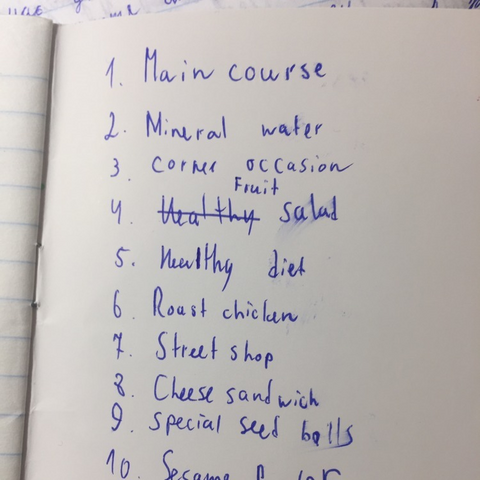 1. Main course
2. Mineral water
3. corner occasion
Fruit
4. Healthy salad
5. Healthy diet
6. Roast chicken
7. Street shop
8. Cheese sandwich
9. special seed balls
10. Sesame